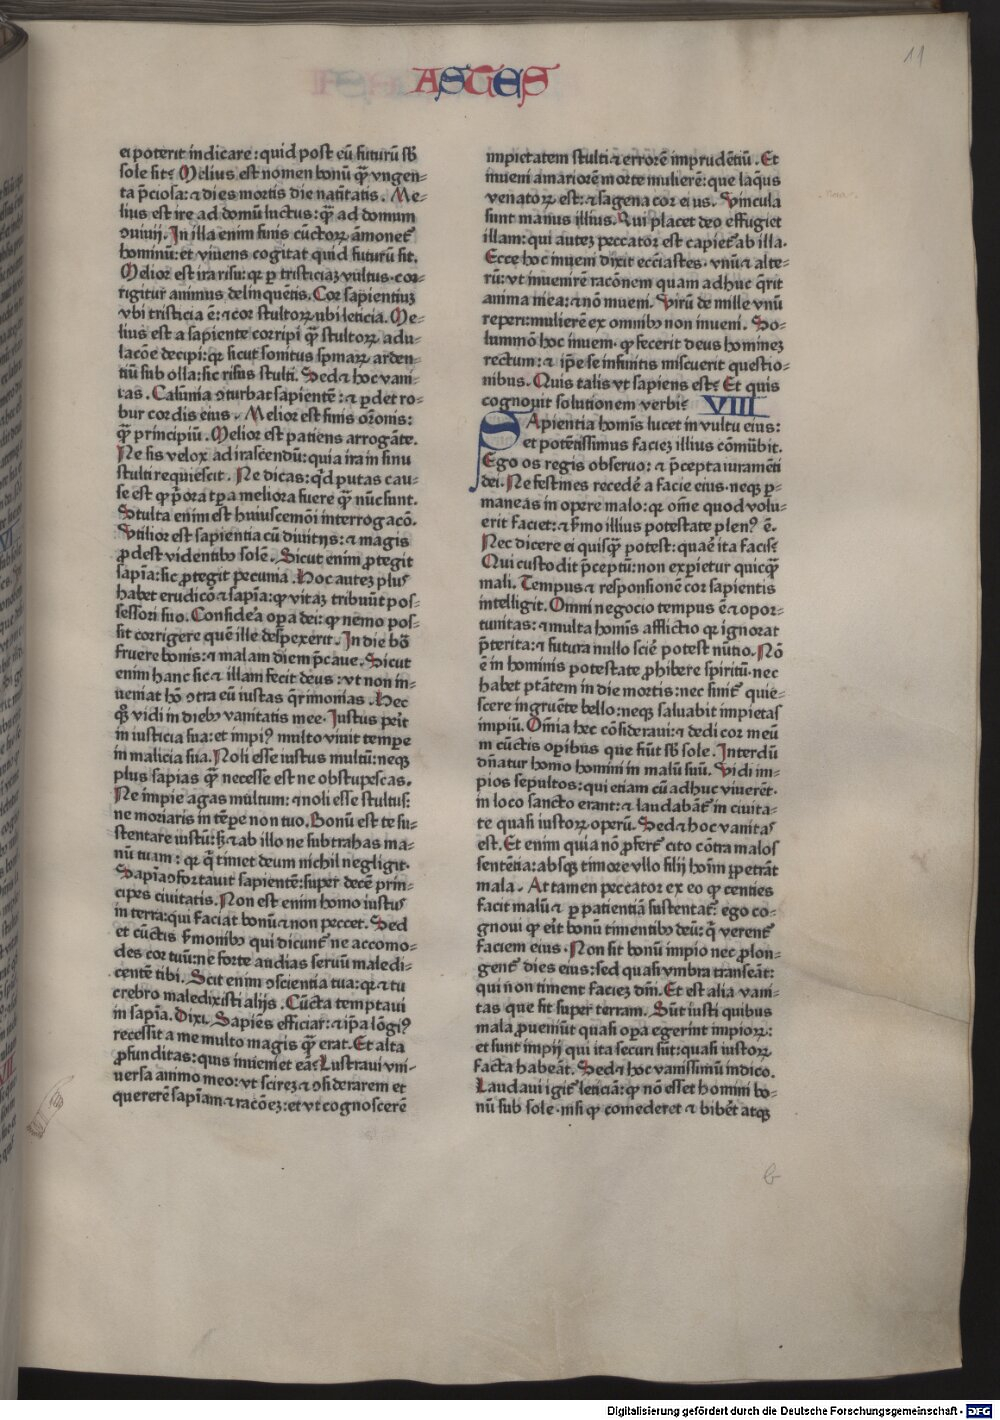 11
ASTES
ei poterit indicare: quid post eū futurū sb̄
sole sit? Melius est nomen bonū q̄ȝ vngen-
ta p̄ciosa: ⁊ dies mortis die natītatis. Me-
lius est ire ad domū luctus: q̄ȝ ad domum
ꝯuiuij. In illa enim finis cūctoꝝ āmonet᷑
hominū: et viuens cogitat quid futurū sit.
Melior est ira risu: qꝛ ꝑ tristiciaȝ vultus cor-
rigitur animus delinquētis. Cor sapientiuȝ
vbi tristicia ē: ⁊ cor stultoꝝ ubi leticia. Me-
lius est a sapiente corripi q̄ȝ stultoꝝ adu-
lacōe decipi: qꝛ sicut sonitus spinaꝝ arden-
tiū sub olla: sic risus stulti. Sed ⁊ hoc vani-
tas. Calūnia ꝯturbat sapientē: ⁊ ꝑdet ro-
bur cordis eius. Melior est finis orōnis:
q̄ȝ principiū. Melior est patiens arrogāte.
Ne sis velox ad irascendū: quia ira in sinu
stulti requiescit. Ne dicas: qͥd putas cau-
se est ꝙ p̄ora tꝑa meliora fuere q̄ȝ nūc sunt.
Stulta enim est huiuscemōi interrogacō.
Vtilior est sapientia cū diuitijs: ⁊ magis
ꝓdest videntibꝰ solē. Sicut enim ꝓtegit
sapīa: sic ꝓtegit pecunia. Hoc auteȝ plus
habet erudicō ⁊ sapīa: ꝙ vitaȝ tribuūt pos-
sessori suo. Considēa opa dei: ꝙ nemo pos-
sit corrigere quē ille despexerit. In die bō
fruere bonis: ⁊ malam diem p̄caue. Sicut
enim hanc sic ⁊ illam fecit deus: vt non in-
ueniat hō ꝯtra eū iustas q̄rimonias. Hec
qꝫ vidi in diebꝰ vanitatis mee. Iustus peīt
in iusticia sua: et impiꝰ multo viuit tempe
in malicia sua. Noli esse iustus multū: neqꝫ
plus sapias q̄ȝ necesse est ne obstupescas.
Ne impie agas multum: ⁊ noli esse stultus:
ne moriaris in tēpe non tuo. Bonū est te su-
stentare iustū: sꝫ ⁊ ab illo ne subtrahas ma-
nū tuam: qꝛ qͥ timet deum nichil negligit.
Sapīa ꝯfortauit sapientē: super decē prin-
cipes ciuitatis. Non est enim homo iustus
in terra: qui faciat bonū ⁊ non peccet. Sed
et cūctis s̄monibꝰ qui dicunt᷑ ne accomo-
des cor tuū: ne forte audias seruū maledi-
centē tibi. Scit enim ꝯscientia tua: qꝛ ⁊ tu
crebro maledixisti alijs. Cūcta temptaui
in sapīa. Dixi. Sapiēs efficiar: ⁊ ip̄a lōgiꝰ
recessit a me multo magis q̄ȝ erat. Et alta
ꝓfunditas: quis inueniet eā? Lustraui vni-
uersa animo meo: vt scireȝ ⁊ ꝯsiderarem et
quererē sapīam ⁊ racōeȝ: et vt cognoscerē
impietatem stulti ⁊ errorē imprudētiū. Et
inueni amariorē morte mulierē: que laq̄us
venatoꝝ est: ⁊ sagena cor eius. Vincula
sunt manus illius. Qui placet deo effugiet
illam: qui auteȝ peccator est capiet᷑ ab illa.
Ecce hoc inueni dixit ecc̄iastes. vnū ⁊ alte-
rū: vt inuenirē racōnem quam adhuc q̄rit
anima mea: ⁊ nō inueni. Virū de mille vnū
reperi: mulierē ex omnibꝰ non inueni. So-
lummō hoc inueni. ꝙ fecerit deus homineȝ
rectum: ⁊ ip̄e se infinitis miscuerit questio-
nibus. Quis talis vt sapiens est? Et quis
cognouit solutionem verbi? VIII
Sapientia homīs lucet in vultu eius:
et potētissimus facieȝ illius cōmūbit.
Ego os regis obseruo: ⁊ p̄cepta iuramēti
dei. Ne festines recedē a facie eius. neqꝫ ꝑ-
maneas in opere malo: qꝛ om̄e quod volu-
erit faciet: ⁊ s̄mo illius potestate plenꝰ ē.
Nec dicere ei quisq̄ȝ potest: quaē ita facis?
Qui custodit p̄ceptū: non exꝑietur quicq̄ȝ
mali. Tempus ⁊ responsionē cor sapientis
intelligit. Omni negocio tempus ē ⁊ opor-
tunitas: ⁊ multa homīs afflictio qꝛ ignorat
p̄terita: ⁊ futura nullo sciē potest nūtio. Nō
ē in hominis potestate ꝓhibere spiritū. nec
habet ptātem in die mortis: nec sinit᷑ quie-
scere ingruēte bello: neqꝫ saluabit impietas
impiū. Om̄ia hec cōsideraui: ⁊ dedi cor meū
in cūctis opibus que fiūt sb̄ sole. Interdū
dn̄atur homo homini in malū suū. Vidi im-
pios sepultos: qui etiam cū adhuc viuerēt.
in loco sancto erant: ⁊ laudabāt᷑ in ciuita-
te quasi iustoꝝ operū. Sed ⁊ hoc vanitas
est. Et enim quia nō ꝓfert᷑ cito cōtra malos
sentētia: absqꝫ timore vllo filij homī ꝑpetrāt
mala. Attamen peccator ex eo ꝙ centies
facit malū ⁊ ꝑ patientiā sustentat᷑: ego co-
gnoui ꝙ eīt bonū timentibꝰ deū: qͥ verent᷑
faciem eius. Non sit bonū impio nec ꝓlon-
gent᷑ dies eius: sed quasi vmbra transeāt:
qui nō timent facieȝ dn̄i. Et est alia vani-
tas que fit super terram. Sūt iusti quibus
mala ꝓueniūt quasi opa egerint impioꝝ:
et sunt impij qui ita securi sūt: quasi iustoꝝ
facta habeāt. Sed ⁊ hoc vanissimū iudico.
Laudaui igit᷑ leticiā: ꝙ nō esset homini bo-
nū sub sole. nisi ꝙ comederet ⁊ bibēt atqꝫ
b
Digitalisierung gefördert durch die Deutsche Forschungsgemeinschaft - DFG